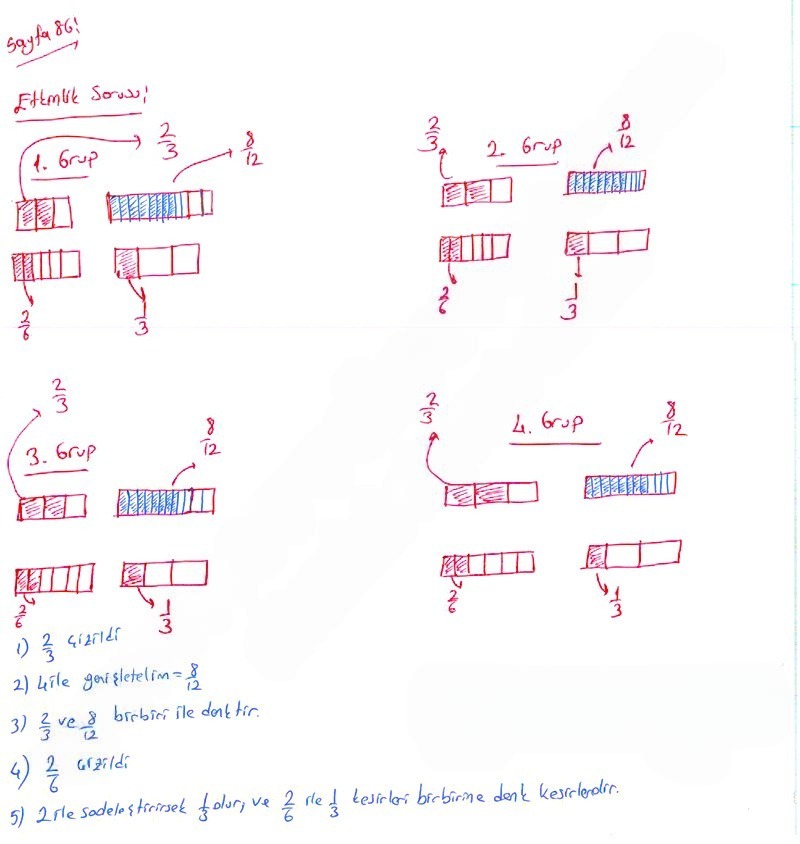 Sayfa 86!
Etkinlik Sorusu!
1. Grup
2/3
8/12
2/6
1/3
2. Grup
2/3
8/12
2/6
1/3
3. Grup
2/3
8/12
2/6
1/3
4. Grup
2/3
8/12
2/6
1/3
1) 2/3 çizildi
2) 4 ile genişletelim = 8/12
3) 2/3 ve 8/12 birbiri ile denktir.
4) 2/6 çizildi
5) 2 ile sadeleştirirsek 1/3 olur, ve 2/6 ile 1/3 kesirleri birbirine denk kesirlerdir.